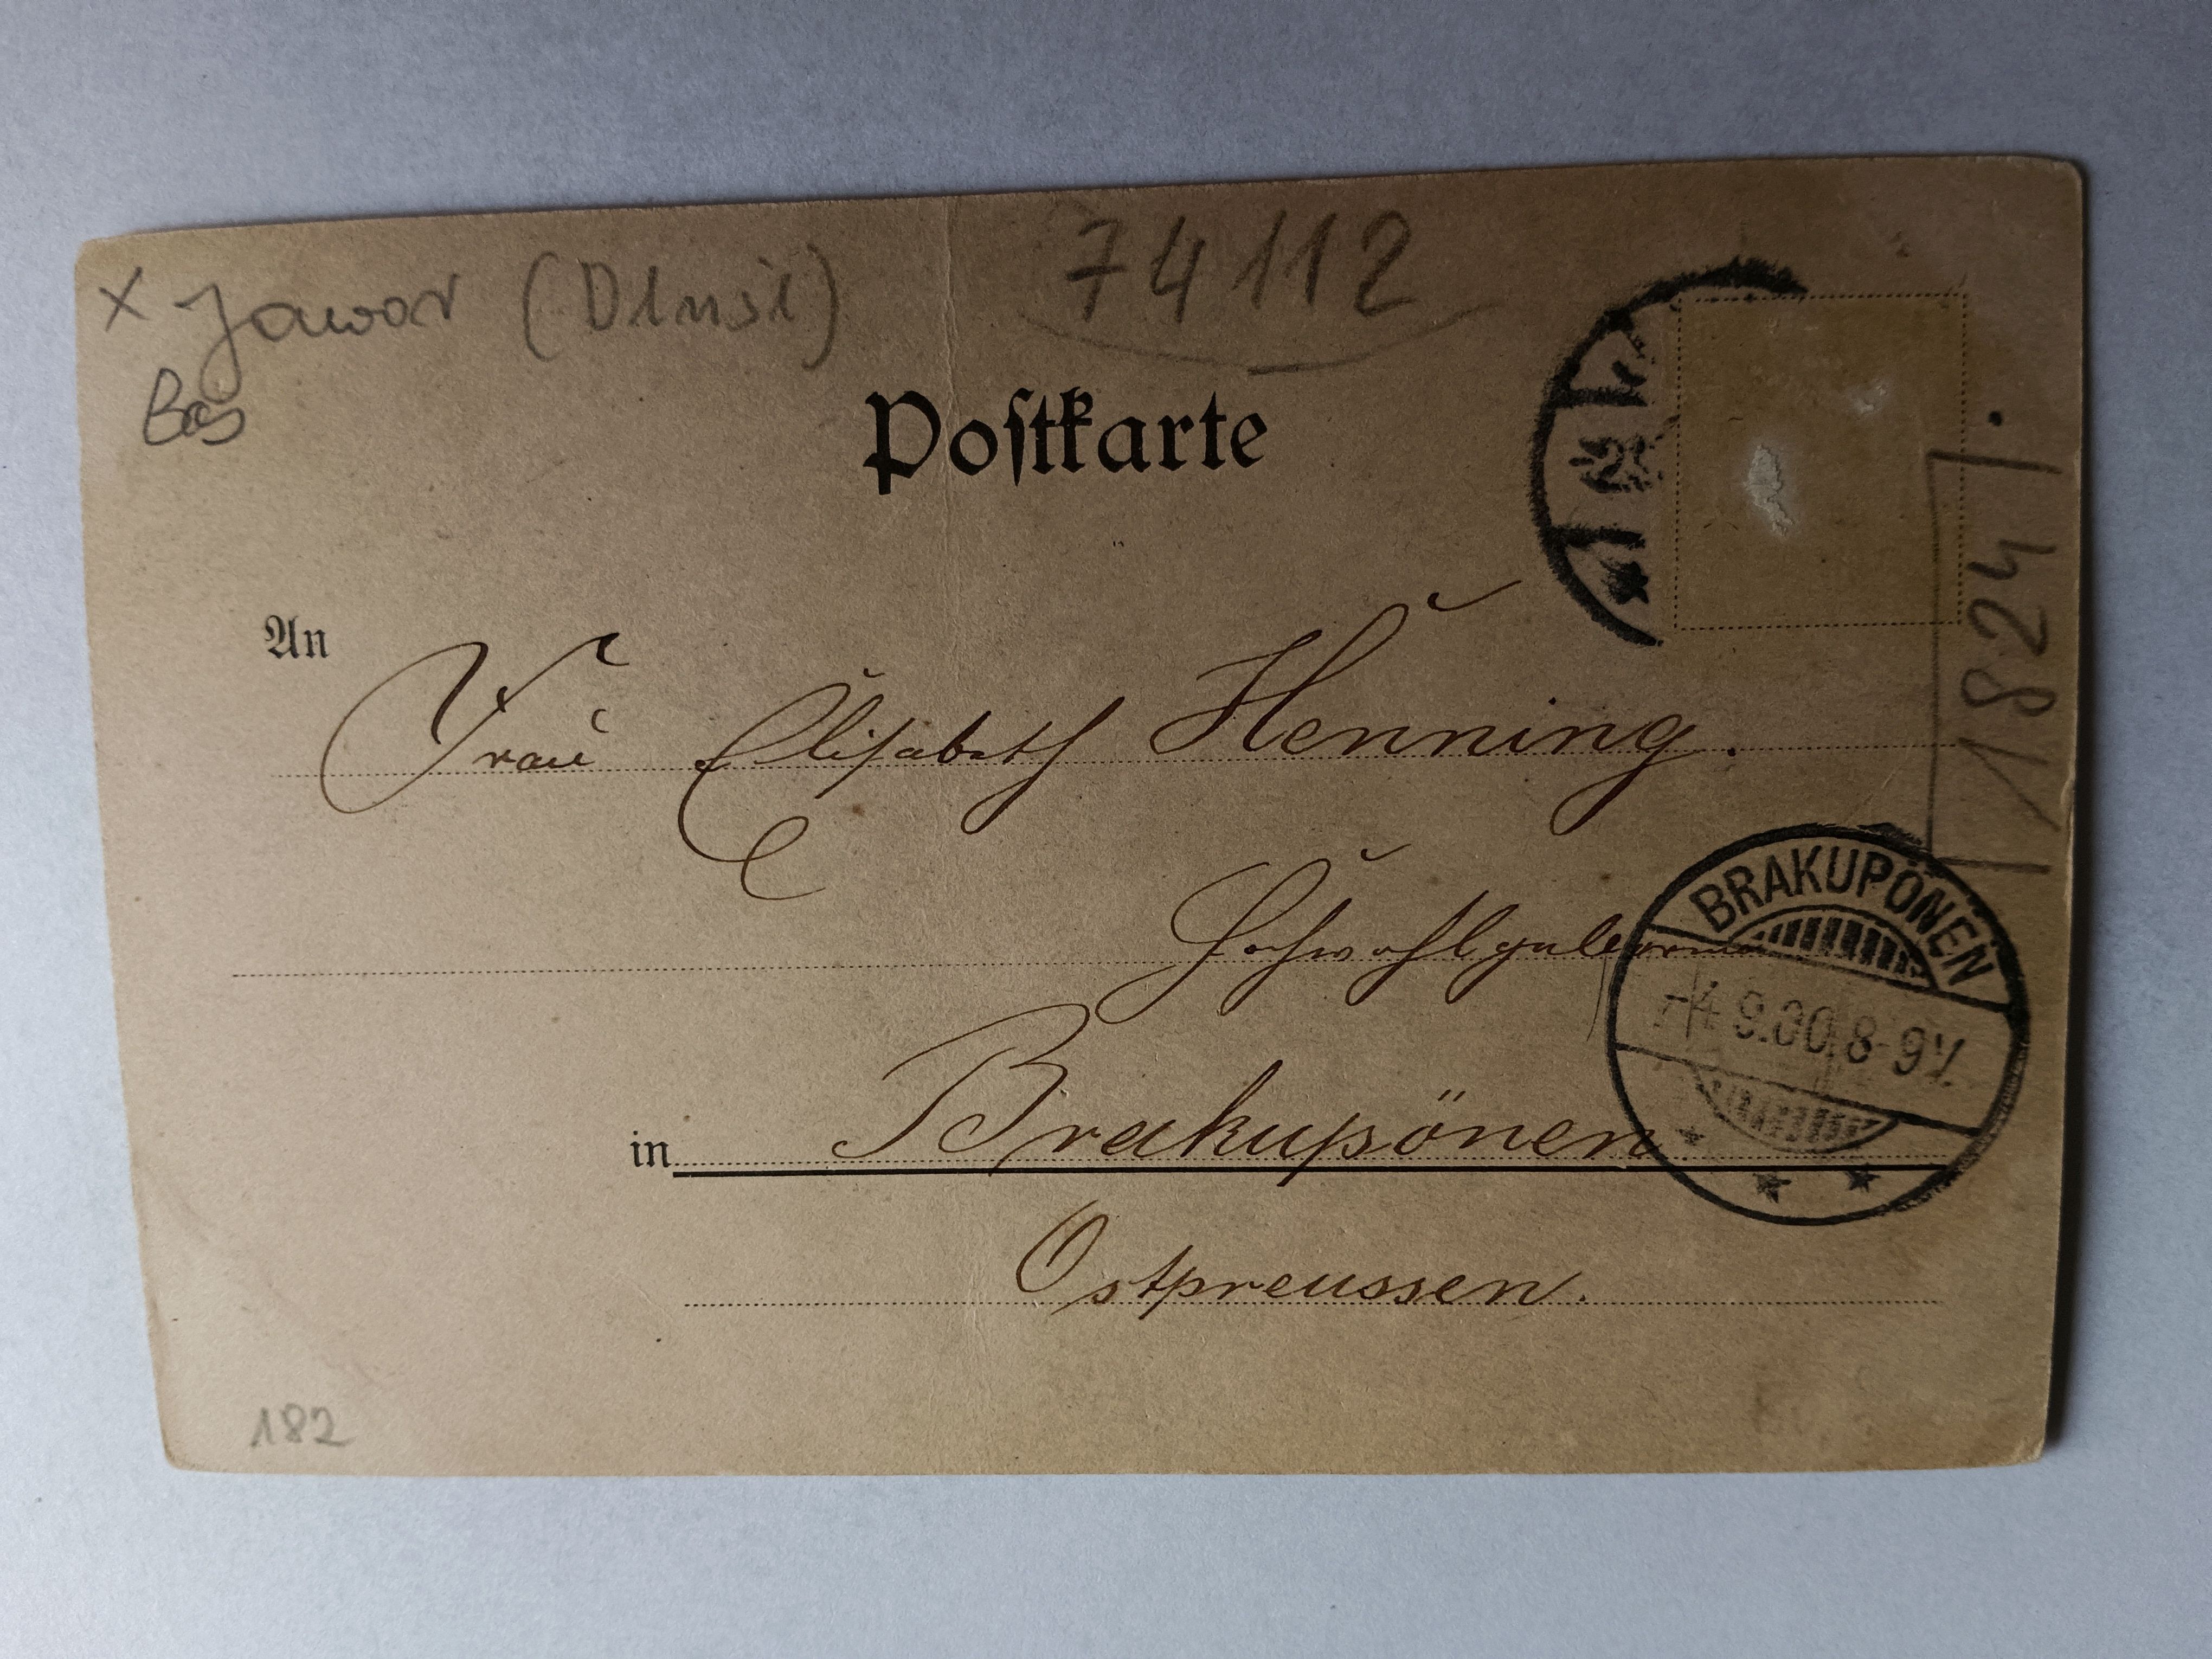 x Jawor (Dlnsl) 74112
Postkarte
1824/.
An
Frau Elisabeth Henning.
Hochwohlgeboren
BRAKUPÖNEN
-4 9.00 8-9V.
in Brakupönen
Ostpreussen.
182